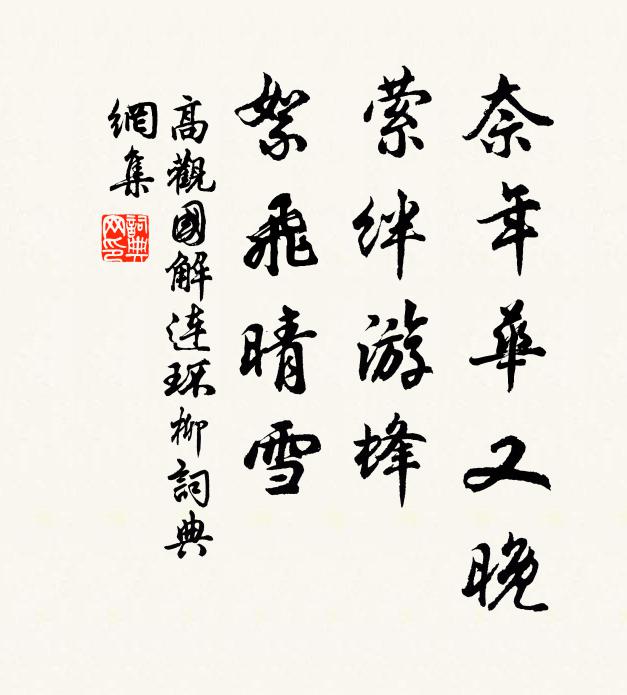 奈年華又晚
縈絆游蜂
絮飛晴雪
高觀國解連环柳詞典
網集
詞典網印